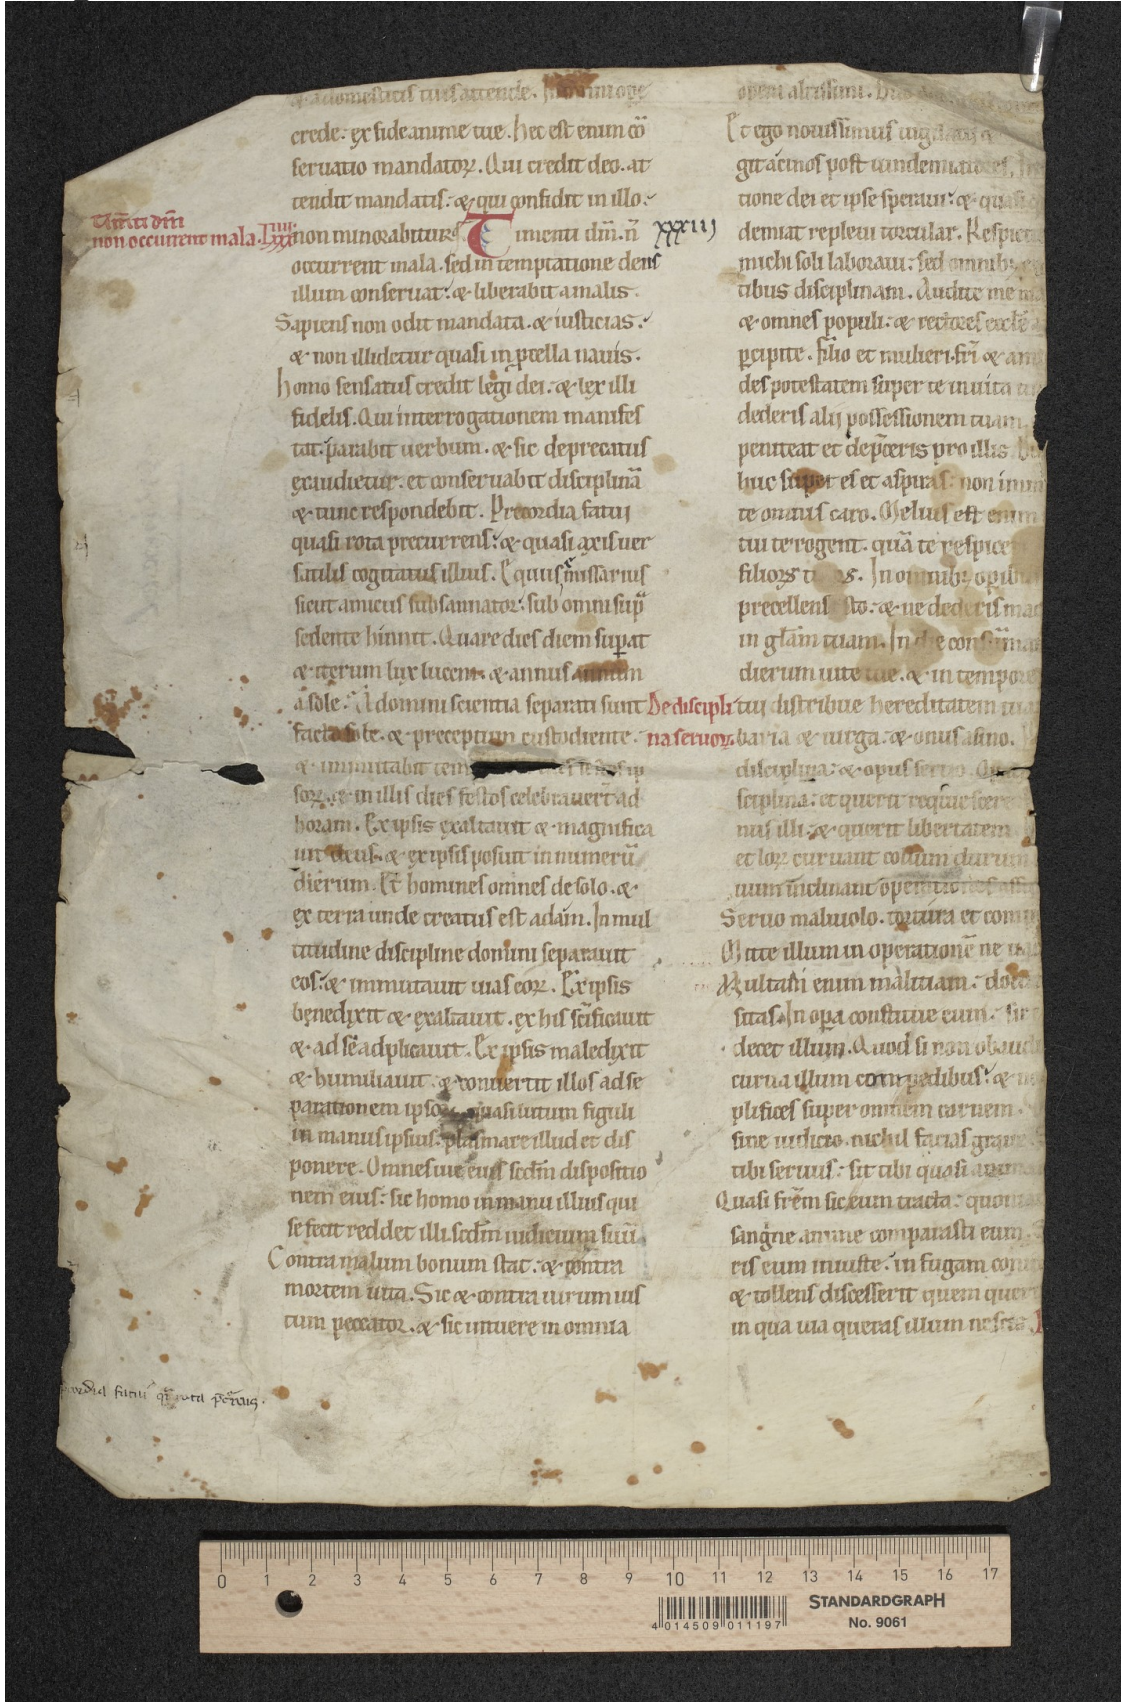 & a domesticis tuis attende. In omni ope
crede: ex fide anime tue. hec est enim cō
seruatio mandatoꝝ. Qui credit deo. at
tendit mandatis: & qui confidit in illo:
non minorabitur. Timenti dm̄. n̄
occurrent mala. sed in temptatione deus
illum conseruat: & liberabit a malis.
Sapiens non odit mandata. & iusticias:
& non illidetur quasi in ꝓcella nauis.
homo sensatus credit legi dei: & lex illi
fidelis. Qui interrogationem manifes
tat. parabit uerbum. & sic deprecatus
exaudietur. et conseruabit disciplinā
& tunc respondebit. Precordia fatui
quasi rota precurrens: & quasi axis uer
satilis cogitatus illius. Equus emissarius
sicut amicus subsannator: sub omni sup̄
sedente hinnit. Quare dies diem suꝑat
& iterum lux lucem. & annus annum
a sole: A domini scientia separati sunt
facto sole. & preceptum custodiente.
& inmutabit tem
soꝝ. & in illis dies festos celebrauer̄t ad
horam. Ex ipsis exaltauit & magnifica
uit deus. & ex ipsis posuit in numerū
dierum. Et homines omnes de solo. &
ex terra unde creatus est adam. In mul
titudine discipline domini separauit
eos: & inmutauit uias eoꝝ. Ex ipsis
benedixit & exaltauit. ex his sc̄ificauit
& ad se adplicauit. Ex ipsis maledixit
& humiliauit. & conuertit illos a dse
paratione ipsoꝝ quasi lutum figuli
in manus ipsius: plasmare illud et dis
ponere. Omnes uie eius scdm̄ dispositio
nem eius: sic homo in manu illius qui
se fecit reddet illi. scdm̄ iudicium suū.
Contra malum bonum stat: & contra
mortem uita. Sic & contra uirum ius
tum peccator. & sic intuere in omnia
Timēti dm̄
non occurrent mala. Lxxiiii
xxxiij
De discipli
na seruoꝝ.
precordia fatui
opera altissimi. Duo
Et ego nouissimus uigilaui &
git acinos post uindemiatores. In
tione dei et ipse speraui: & quasi
demiat repleui torcular. Respicite
michi soli laboraui: sed omnibꝫ
tibus disciplinam. Audite me
& omnes populi: & rectores eccl̄e
ꝑcipite. filio et mulieri. fr̄i & ami
des potestatem super te in uita tua
dederis alii possessionem tuam.
peniteat et dep̄ceris pro illis. Du
huc superes et aspiras: non inmu
te omnis caro. Melius est enim
tui te rogent. quā te respicere
filioꝝ In omnibꝫ opibus
precellens esto: & ne dederis mac
in glam̄ tuam. In die consūma
dierum uite tue. & in tempore
tui distribue hereditatem tua
baria & uirga: & onus asino.
disciplina: & opus seruo.
sciplina: et querit requiescere
nus illi: & querit libertatem
et loꝝ curuant collum durum
uum inclinant operationes assi
Seruo maliuolo. tortura et com
Mitte illum in operationē ne
Multam enim malitiam: docu
sitas. In oꝑa constitue eum. sic
decet illum. Quod si non obaudi
curua illum compedibus: & no
plifices super omnem carnem.
sine iudicio. nichil facias graue.
tibi seruus: sit tibi quasi anima
Quasi frēm sic eum tracta: quonia
sangine anime comparasti eum.
ris eum iniuste: in fugam con
& tollens discesserit quem quer
in qua uia queras illum nescis.
0 1 2 3 4 5 6 7 8 9 10 11 12 13 14 15 16 17
STANDARDGRAPH
No. 9061
4 014509 011197